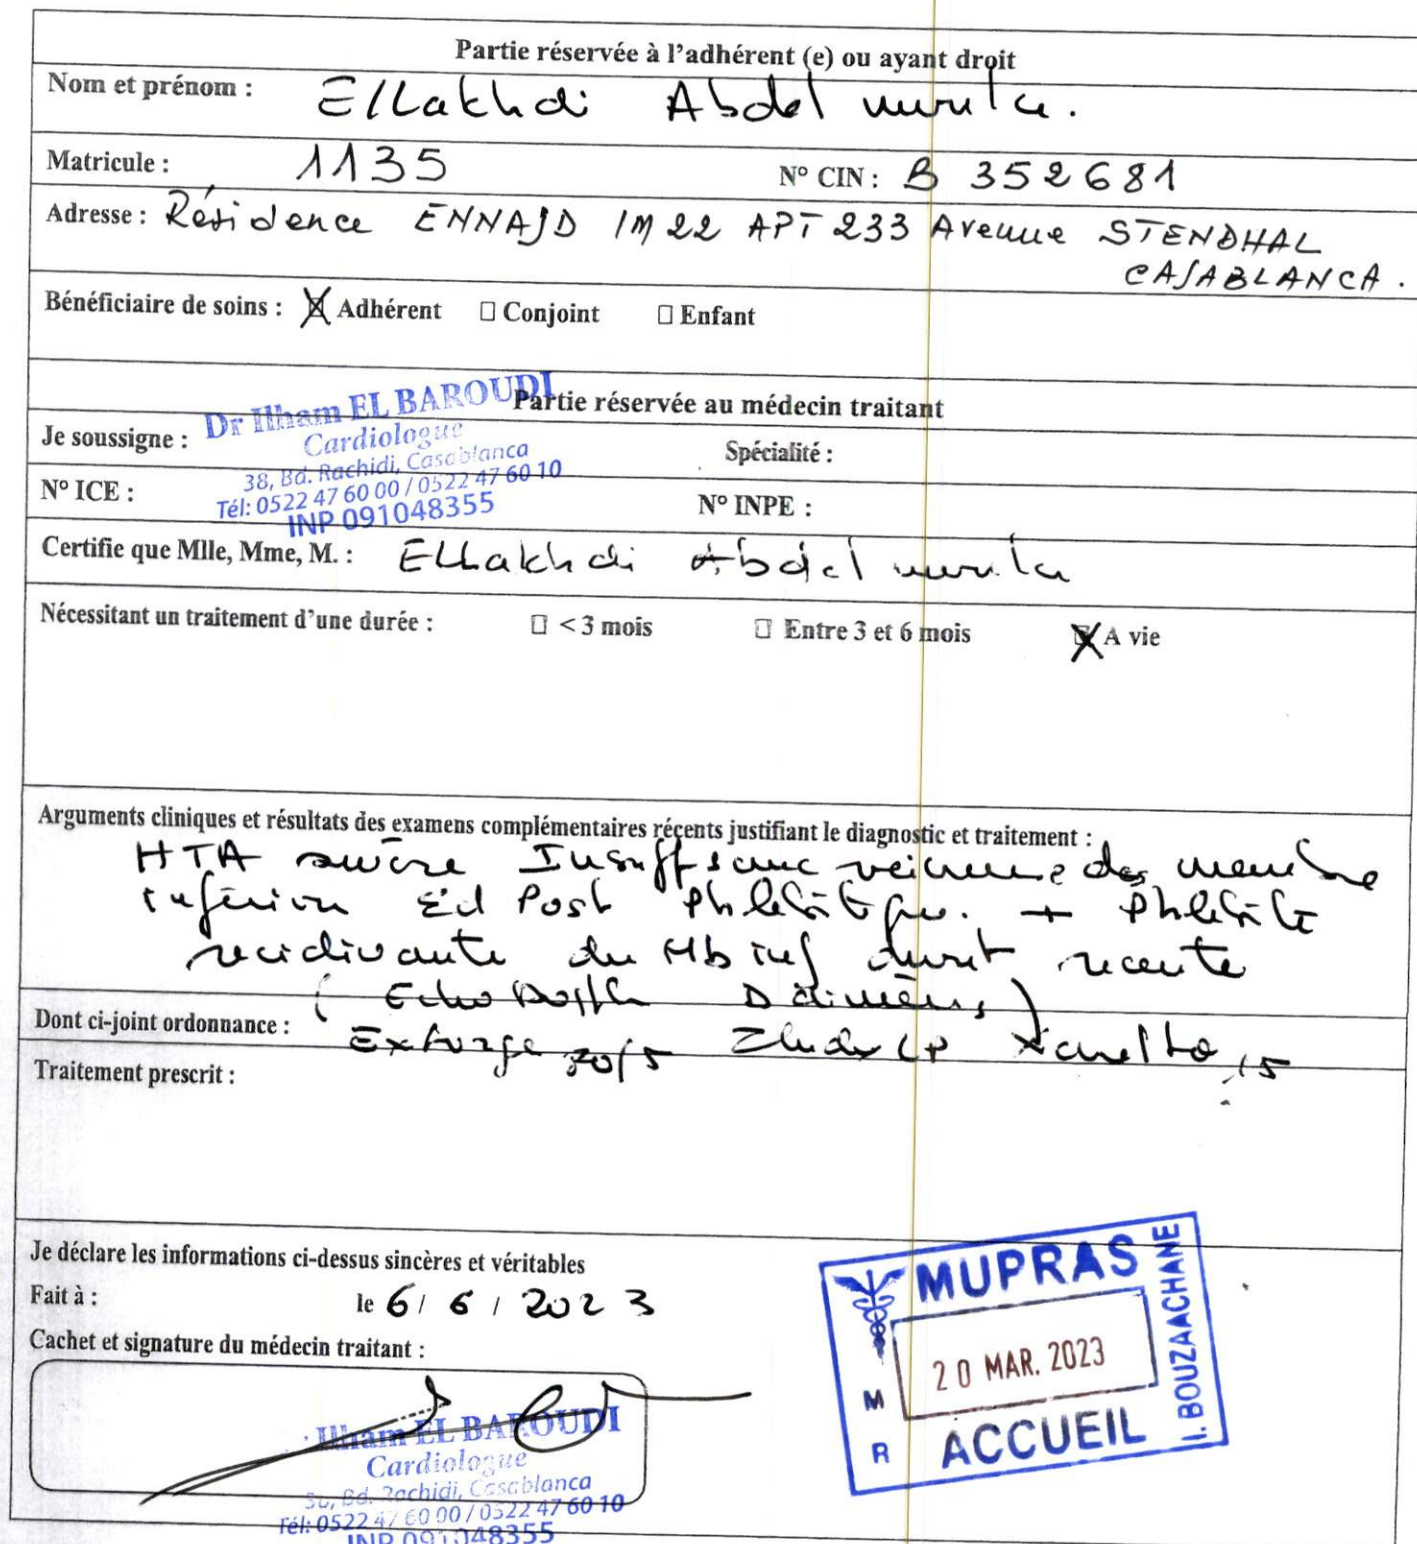 Partie réservée à l'adhérent (e) ou ayant droit
Nom et prénom : Ellakhdi Abdel
Matricule : 1135 N° CIN : B 352681
Adresse : Résidence ENNAJD IM 22 APT 233 Avenue STENDHAL
CASABLANCA.
Bénéficiaire de soins : Adhérent Conjoint Enfant
Partie réservée au médecin traitant
Dr Ilham EL BAROUDI
Cardiologue
38, Bd. Rachidi, Casablanca
Tél: 0522 47 60 00 / 0522 47 60 10
INP 091048355
Je soussigne : Spécialité :
N° ICE : N° INPE :
Certifie que Mlle, Mme, M. : Ellakhdi Abdel
Nécessitant un traitement d'une durée : < 3 mois Entre 3 et 6 mois A vie
Arguments cliniques et résultats des examens complémentaires récents justifiant le diagnostic et traitement :
HTA veineuse des membre
Post + Phlébite
recidivante du Mb inf recente
( Echo D dimères )
Dont ci-joint ordonnance :
Exforge Xarelto 15
Traitement prescrit :
Je déclare les informations ci-dessus sincères et véritables
Fait à : le 6 / 6 / 2023
Cachet et signature du médecin traitant :
Ilham EL BAROUDI
Cardiologue
38, Bd. Rachidi, Casablanca
Tél: 0522 47 60 00 / 0522 47 60 10
INP 091048355
MUPRAS
20 MAR. 2023
M
R
ACCUEIL
I. BOUZAACHANE